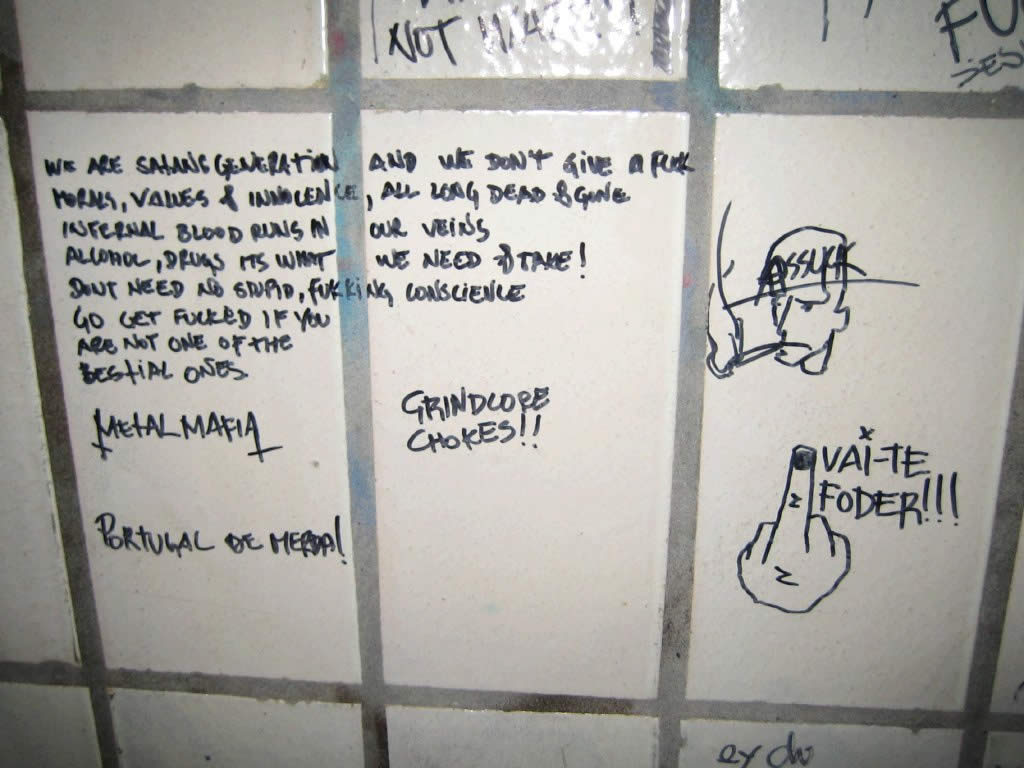 NOT
FU
WE ARE SATANS GENERATION AND WE DON'T GIVE A FUCK
MORALS, VALUES & INNOCENCE, ALL LONG DEAD & GONE
INFERNAL BLOOD RUNS IN OUR VEINS
ALCOHOL, DRUGS ITS WHAT WE NEED & TAKE!
DONT NEED NO STUPID, FUKKING CONSCIENCE
GO GET FUCKED IF YOU
ARE NOT ONE OF THE
BESTIAL ONES
METAL MAFIA
PORTUGAL DE MERDA!
GRINDCORE
CHOKES!!
ASSUCK
VAI-TE
FODER!!!